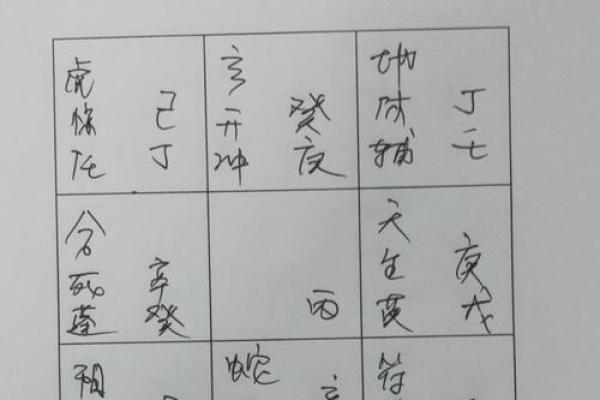 虎
惊
任
己
丁
玄
开
冲
癸
庚
地
休
辅
丁
壬
合
死
蓬
辛
癸
丙
天
生
英
庚
戊
阴
蛇
符